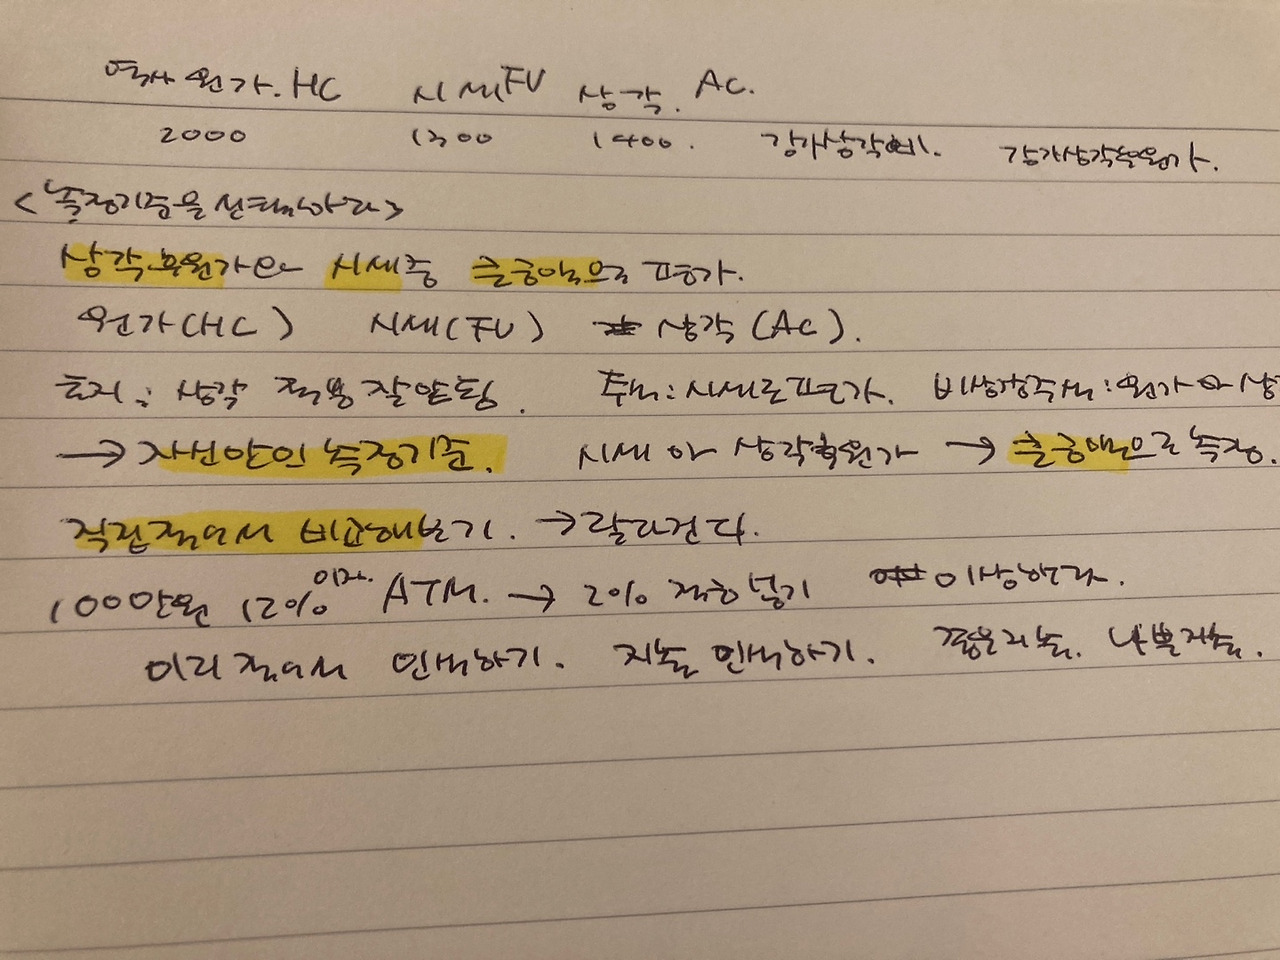 역사원가.HC 시세FV 상각. AC.
2000 1300 1400. 감가상각비. 감가상각후원가.
<측정기준을 선택하라>
상각후원가와 시세중 큰금액으로 평가.
원가(HC) 시세(FV) 상각(AC).
토지: 상각 적용 잘안됨. 주식:시세로평가. 비상장주식:원가 와 상
→ 자신만의 측정기준. 시세 와 상각후원가 → 큰금액으로 측정.
직접적어서 비교해보기. → 달라진다.
100만원 12%이자. ATM. → 2% 적금넣기 이상하다.
미리 적어서 인식하기. 지출 인식하기. 좋은지출. 나쁜지출.